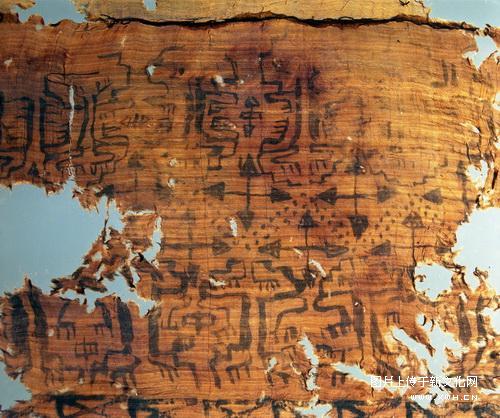 图片上传于新文化网
www.XWH.CN